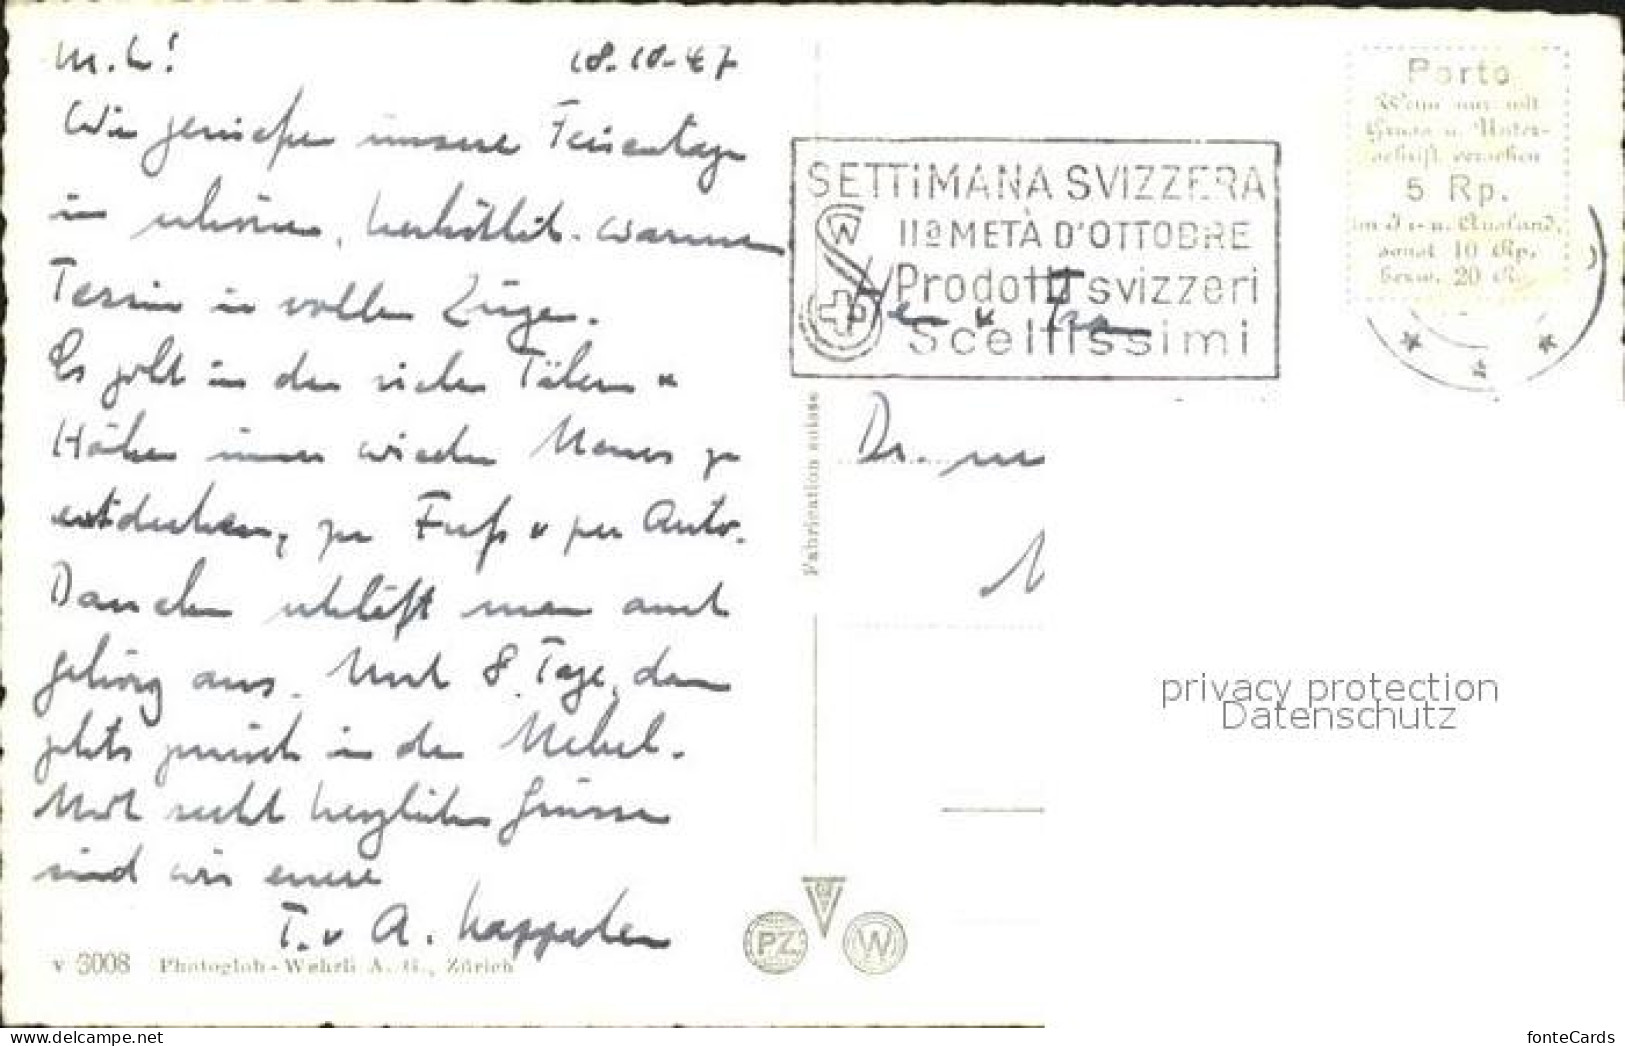 M. L!
18.10.47
Wir geniessen unsere Ferientage
in schönen, herbstlich-warmen
Tessin in vollen Zügen.
Es gibt in den vielen Tälern u
Höhen immer wieder Neues zu
entdecken, zu Fuß u per Auto.
Daneben schläft man auch
gehörig aus. Noch 8 Tage, dann
gehts zurück in den Nebel.
Mit recht herzlichen Grüssen
sind wir eure
T. u A.
v 3008 Photoglob-Wehrli A. G., Zürich
Fabrication suisse
PZ
W
SETTIMANA SVIZZERA
IIa METÀ D'OTTOBRE
Prodotti svizzeri
Sceltissimi
Porto
Wenn nur mit
Gruss u. Unter-
schrift versehen
5 Rp.
im In- u. Ausland,
sonst 10 Rp.
bezw. 20 R.
u
Dr.
privacy protection
Datenschutz
www.delcampe.net
fonteCards